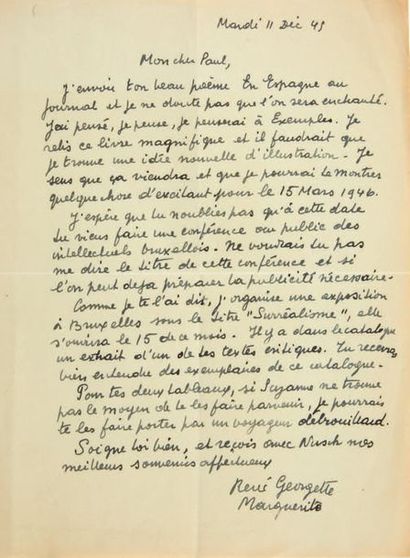 Mardi 11 Déc 45
Mon cher Paul,
J'envoie ton beau poème En Espagne au
journal et je ne doute pas que l'on sera enchanté.
J'ai pensé, je pense, je penserai à Exemples. Je
relis ce livre magnifique et il faudrait que
je trouve une idée nouvelle d'illustration. Je
sens que ça viendra et que je pourrai te montrer
quelque chose d'excitant pour le 15 Mars 1946.
J'espère que tu n'oublies pas qu'à cette date
tu viens faire une conférence au public des
intellectuels bruxellois. Ne voudrais tu pas
me dire le titre de cette conférence et si
l'on peut deja préparer la publicité nécessaire.
Comme je te l'ai dit, j'organise une exposition
à Bruxelles sous le titre "Surréalisme", elle
s'ouvrira le 15 de ce mois. Il y a dans le catalogue
un extrait d'un de tes textes critiques. Tu recevras
bien entendu des exemplaires de ce catalogue.
Pour tes deux tableaux, si Suzanne ne trouve
pas le moyen de te les faire parvenir, je pourrais
te les faire porter par un voyageur débrouillard.
Soigne toi bien, et reçois avec Nusch nos
meilleurs souvenirs affectueux
René Georgette
Magritte